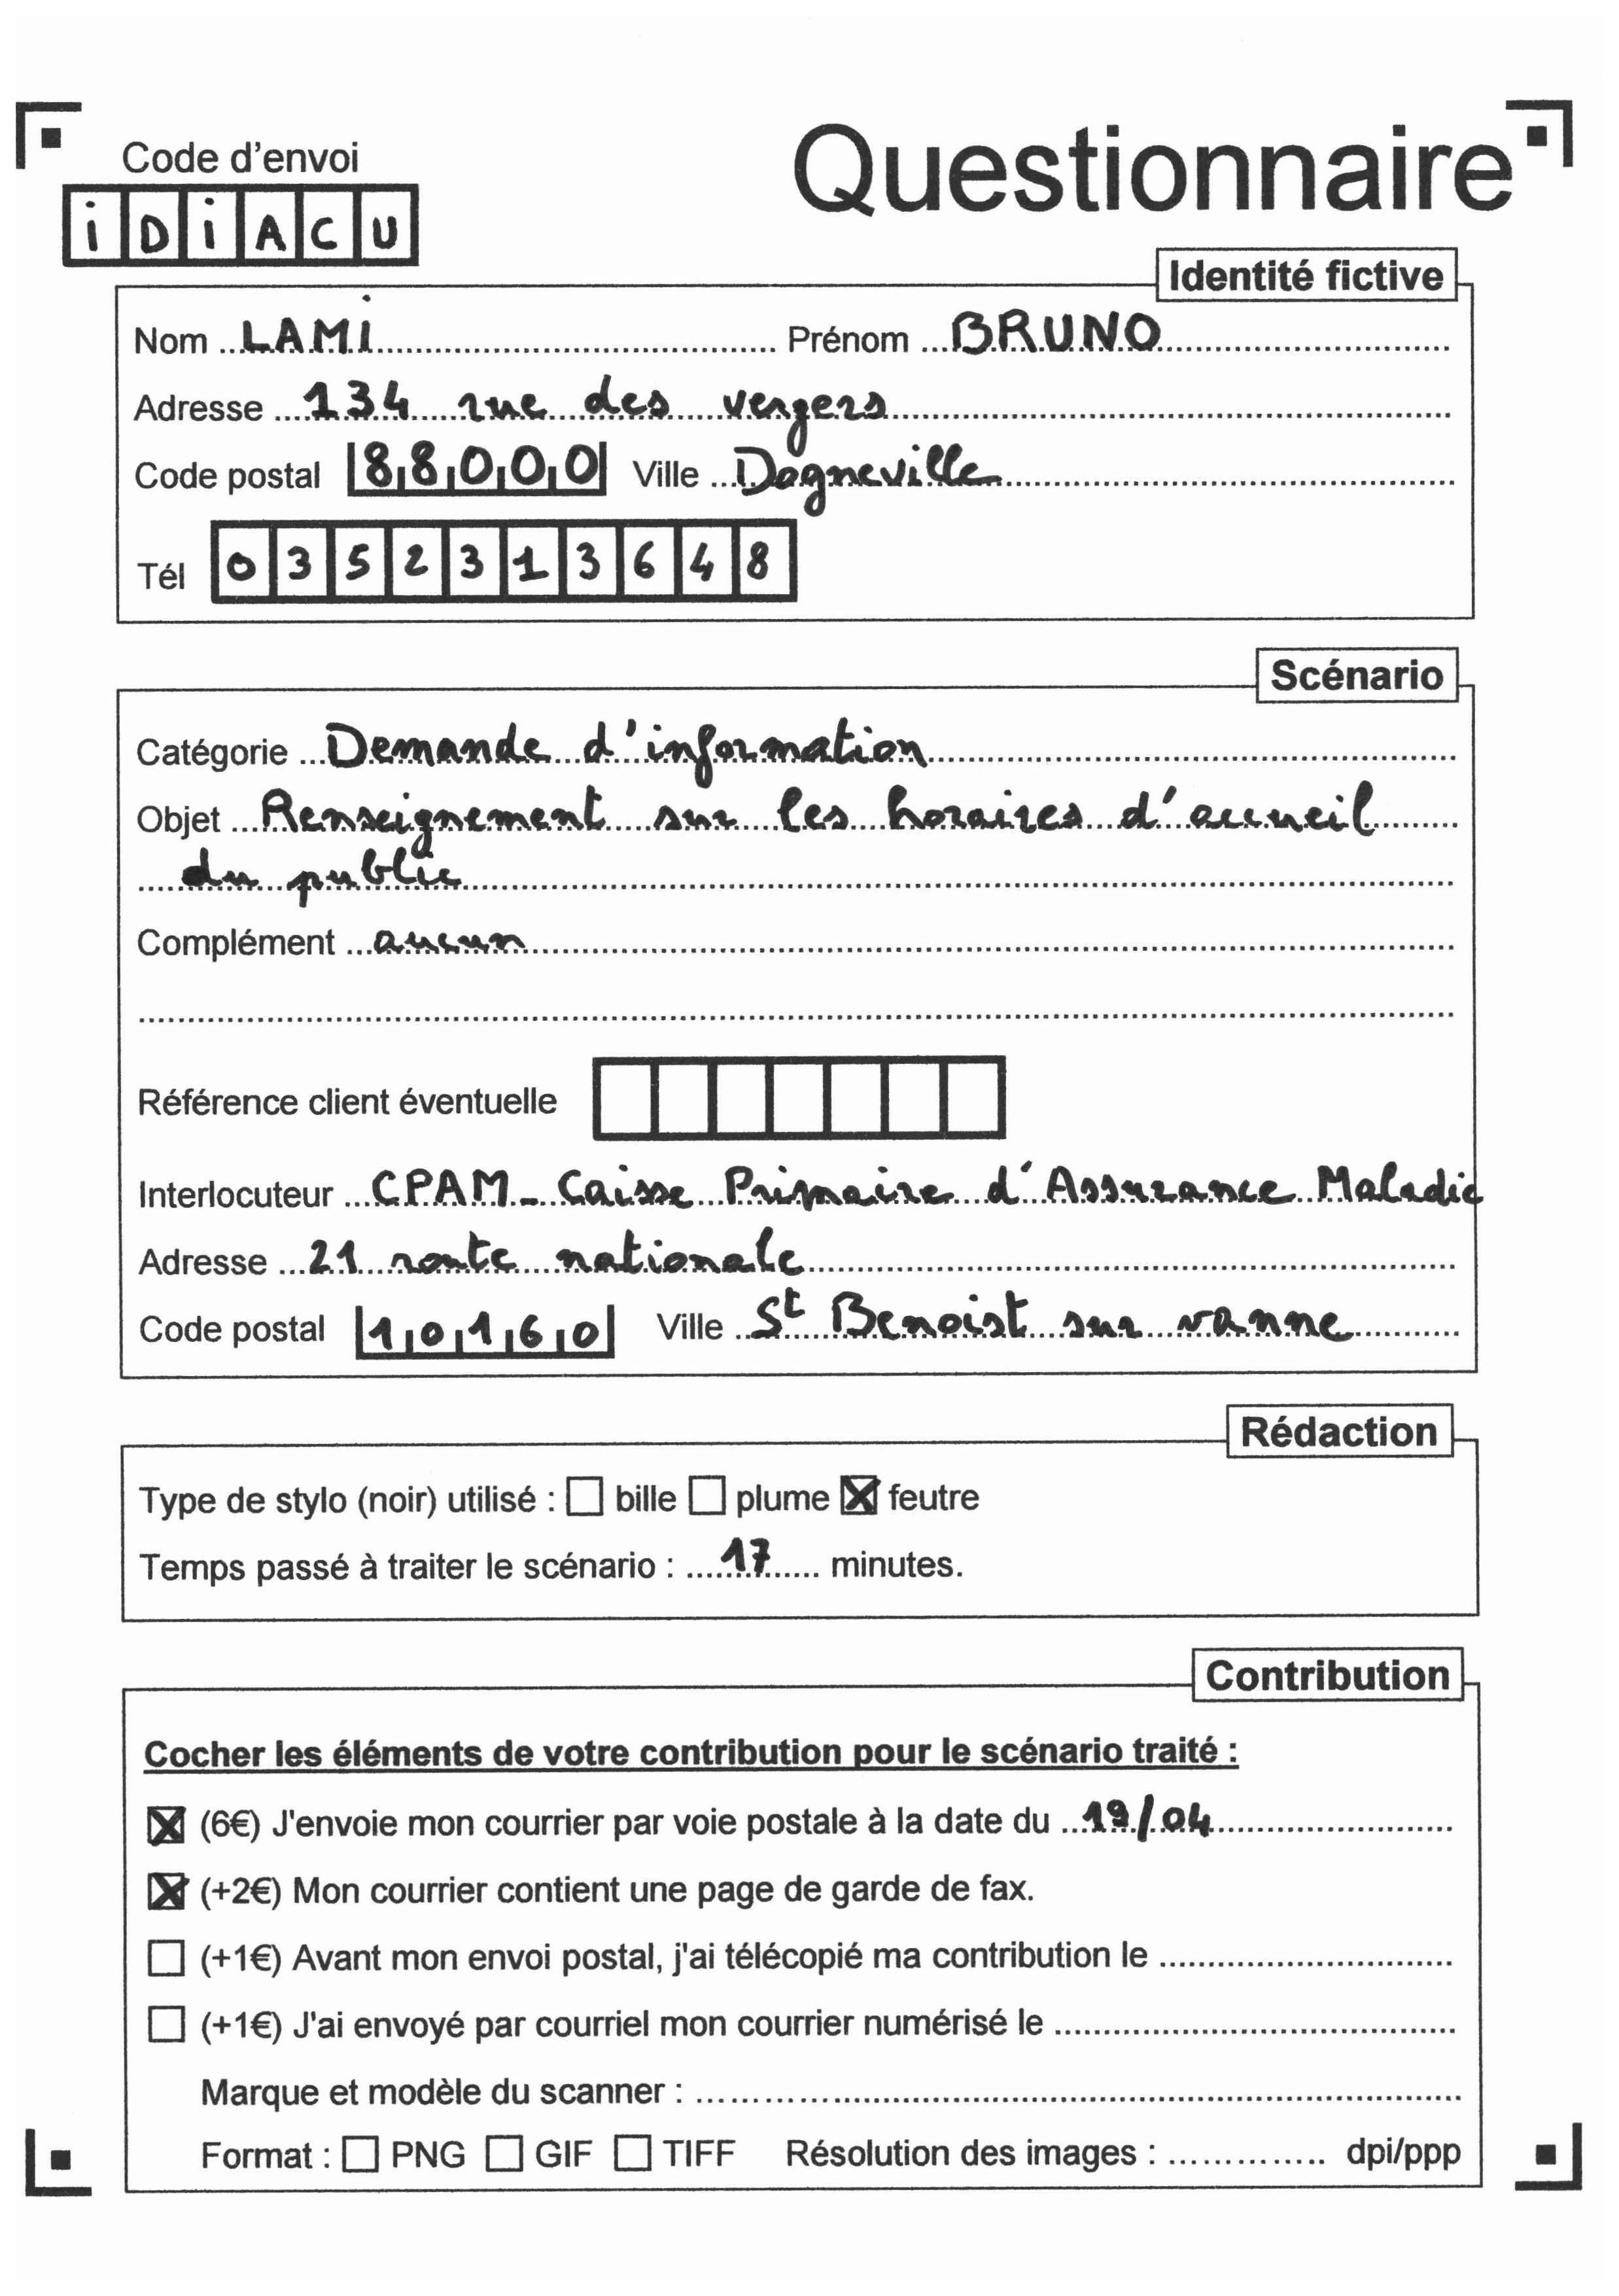 Code d'envoi
Questionnaire
i D i A C U
Identité fictive
Nom LAMi Prénom BRUNO
Adresse 134 rue des vergers
Code postal 88000 Ville Dogneville
Tél 0352313648
Scénario
Catégorie Demande d'information
Objet Renseignement sur les horaires d'accueil
du public
Complément aucun
Référence client éventuelle
Interlocuteur CPAM - Caisse Primaire d'Assurance Maladie
Adresse 21 route nationale
Code postal 10160 Ville St Benoist sur vanne
Rédaction
Type de stylo (noir) utilisé : ☐ bille ☐ plume ☒ feutre
Temps passé à traiter le scénario : 17 minutes.
Contribution
Cocher les éléments de votre contribution pour le scénario traité :
☒ (6€) J'envoie mon courrier par voie postale à la date du 19/04
☒ (+2€) Mon courrier contient une page de garde de fax.
☐ (+1€) Avant mon envoi postal, j'ai télécopié ma contribution le
☐ (+1€) J'ai envoyé par courriel mon courrier numérisé le
Marque et modèle du scanner :
Format : ☐ PNG ☐ GIF ☐ TIFF Résolution des images : dpi/ppp